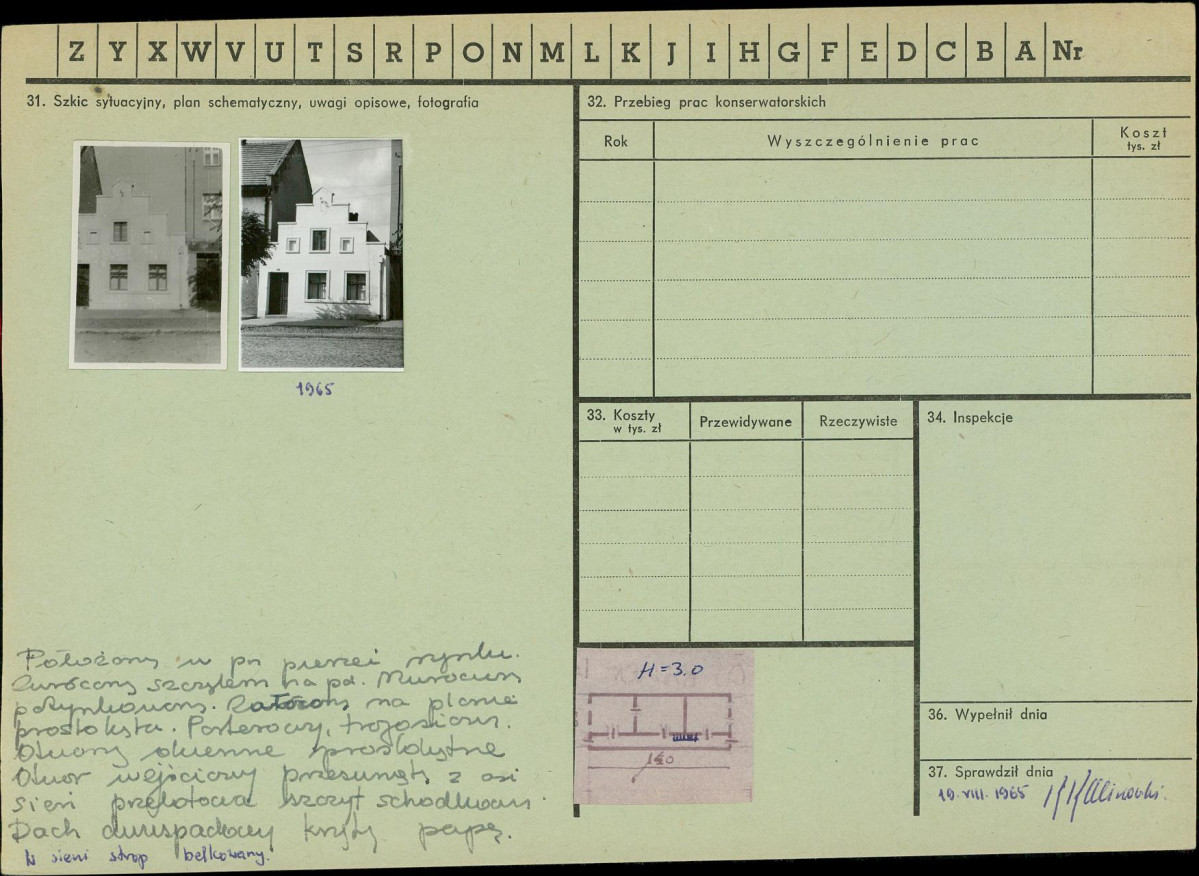 Z Y X W V U T S R P O N M L K J I H G F E D C B A Nr
31. Szkic sytuacyjny, plan schematyczny, uwagi opisowe, fotografia
1965
Położony w pn pierzei rynku.
Zwrócony szczytem na pd. Murowany
potynkowany. Założony na planie
prostokąta. Parterowy, trojosiowy.
Otwory okienne prostokątne
Otwór wejściowy przesunięty z osi
Sień przelotowa szczyt schodkowany.
Dach dwuspadowy kryty papą.
W sieni strop belkowany.
32. Przebieg prac konserwatorskich
Rok
Wyszczególnienie prac
Koszt
tys. zł
33. Koszty
w tys. zł
Przewidywane
Rzeczywiste
34. Inspekcje
H=3.0
36. Wypełnił dnia
37. Sprawdził dnia
19.VIII.1965